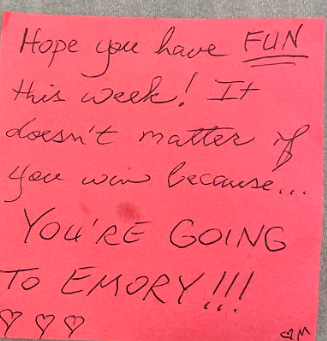 Hope you have FUN
this week! It
doesn't matter if
you win because...
YOU'RE GOING
TO EMORY!!!
♡ ♡ ♡ ♡M